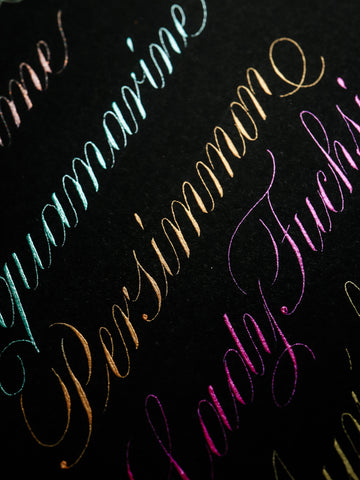 me
quamarine
Persimmon
Lady Fuchsi